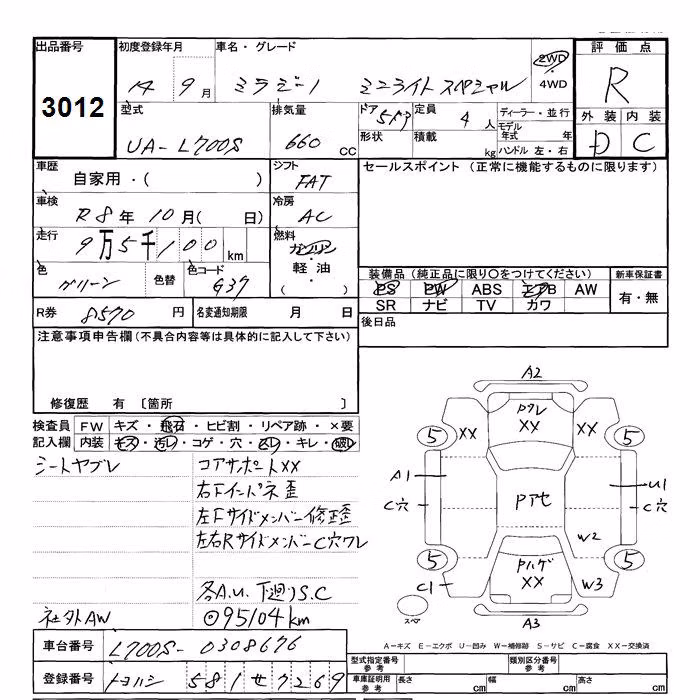 出品番号 初度登録年月 車名・グレード 評価点
3012 14 9月 ミラジーノ ミニライトスペシャル 2WD 4WD R
型式 排気量 ドア 5ドア 定員 4人 ディーラー・並行 外装 内装
UA-L700S 660cc 形状 積載 kg モデル年式 年 ハンドル 左・右 D C
車歴 自家用・( ) シフト FAT セールスポイント (正常に機能するものに限ります)
車検 R8年10月( 日) 冷房 AC
走行 9万5千100km 燃料 ガソリン・軽油・( )
色 グリーン 色替 色コード G37 装備品 (純正品に限り○をつけてください) 新車保証書
PS PW ABS エアB AW 有・無
SR ナビ TV カワ
R券 8570円 名変通知期限 月 日 後日品
注意事項申告欄(不具合内容等は具体的に記入して下さい)
修復歴 有 〔箇所 〕
検査員 FW キズ・飛石・ヒビ割・リペア跡・×要
記入欄 内装 キズ・汚レ・コゲ・穴・スレ・キレ・破レ
シートヤブレ コアサポートXX
右下インパネ歪
左Fサイドメンバー修正歪
左右RサイドメンバーC穴ワレ
各A.U. 下廻りS.C
社外AW ⊙95104km
A2
Pワレ
XX
5 XX XX 5
A1 U1
C穴 Pアセ C穴
W2
5 Pハゲ 5
C1 XX W3
スペア A3
A-キズ E-エクボ U-凹み W-補修跡 S-サビ C-腐食 XX-交換済
車台番号 L700S-0308676 型式指定番号 参考 類別区分番号 参考
登録番号 トヨハシ 581せ7269 車庫証明用 参考 長さ cm 幅 cm 高さ cm